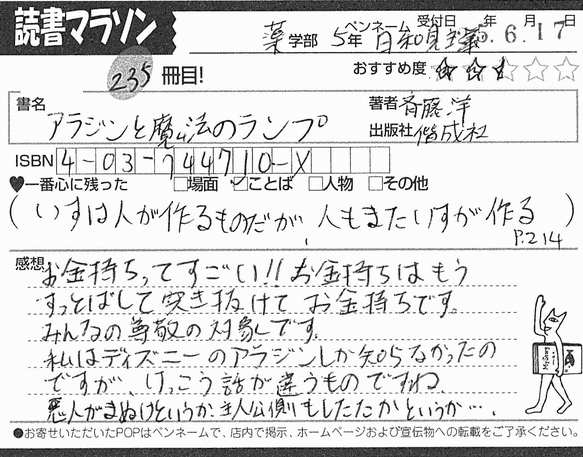 読書マラソン
薬学部 5年 ペンネーム 日和見 受付日 年6月17日
235冊目!
おすすめ度
書名 アラジンと魔法のランプ
著者 斉藤洋
出版社 偕成社
ISBN 4-03-744710-X
♥一番心に残った □場面 ☑ことば □人物 □その他
(いすは人が作るものだが、人もまたいすが作る)
P.214
感想 お金持ちってすごい!! お金持ちはもう
すっとばして突き抜けてお金持ちです。
みんなの尊敬の対象です。
私はディズニーのアラジンしか知らなかったの
ですが、けっこう話が違うものですね。
悪人がまぬけというか、主人公側もしたたかというか…。
●お寄せいただいたPOPはペンネームで、店内で掲示、ホームページおよび宣伝物への転載をご了承ください。